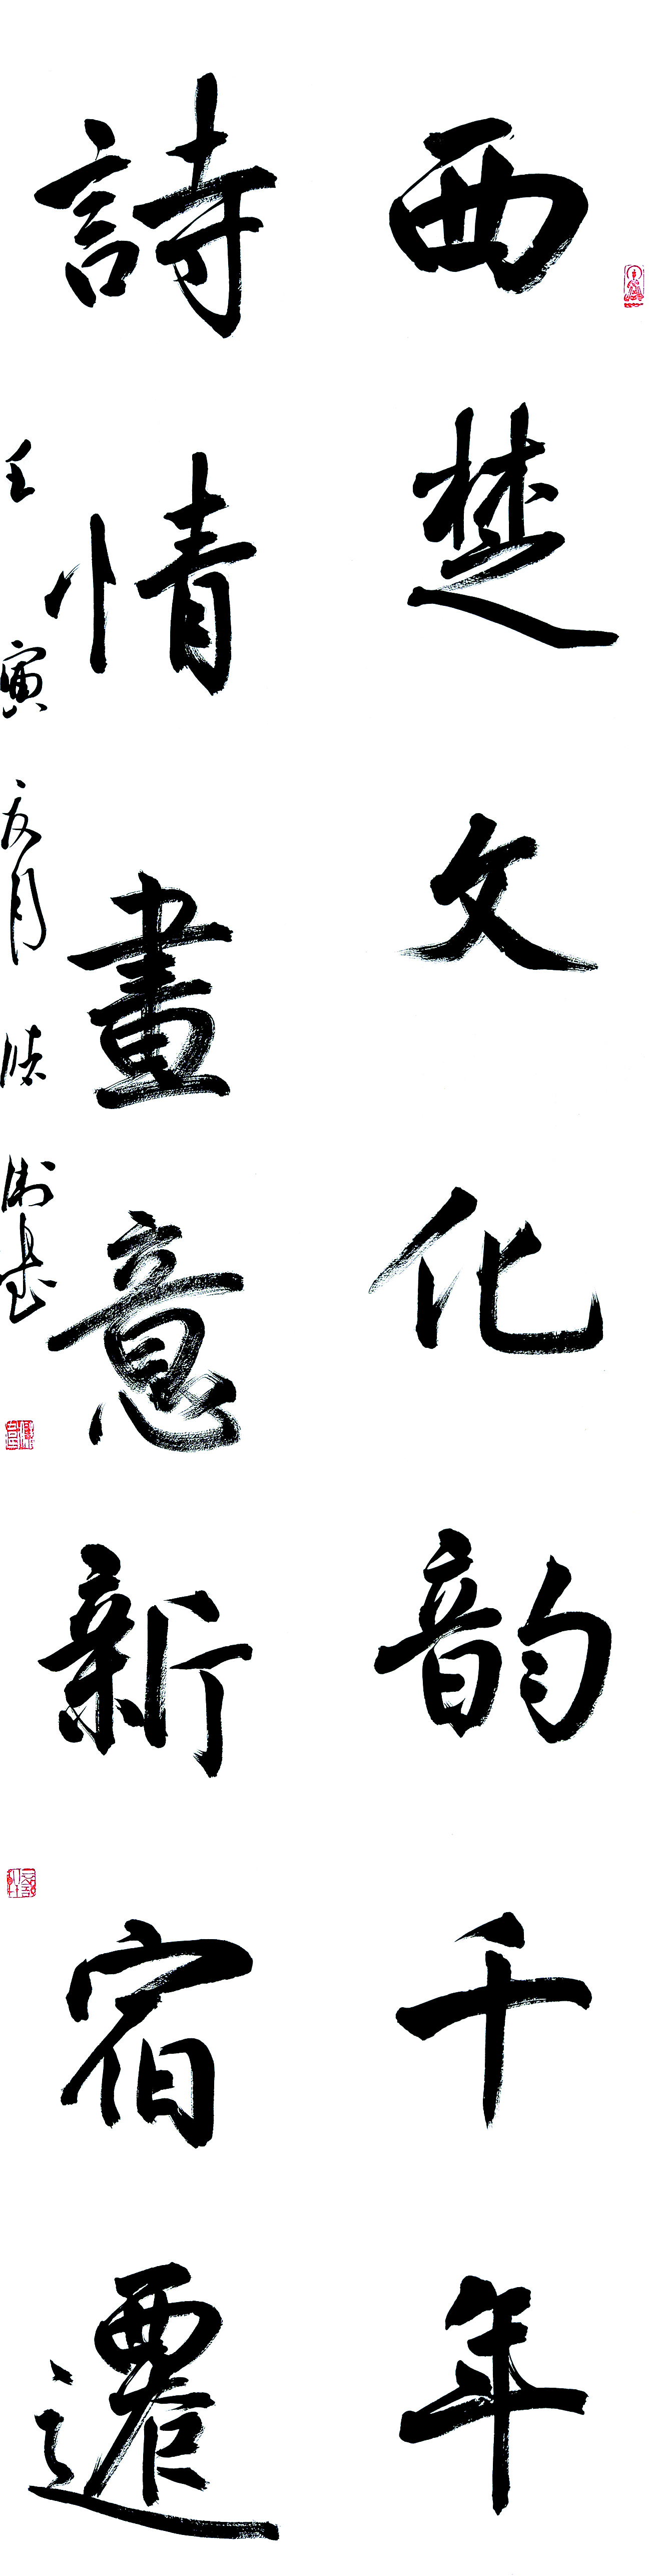 西楚文化韵千年
詩情畫意新宿遷
壬寅夏月
书